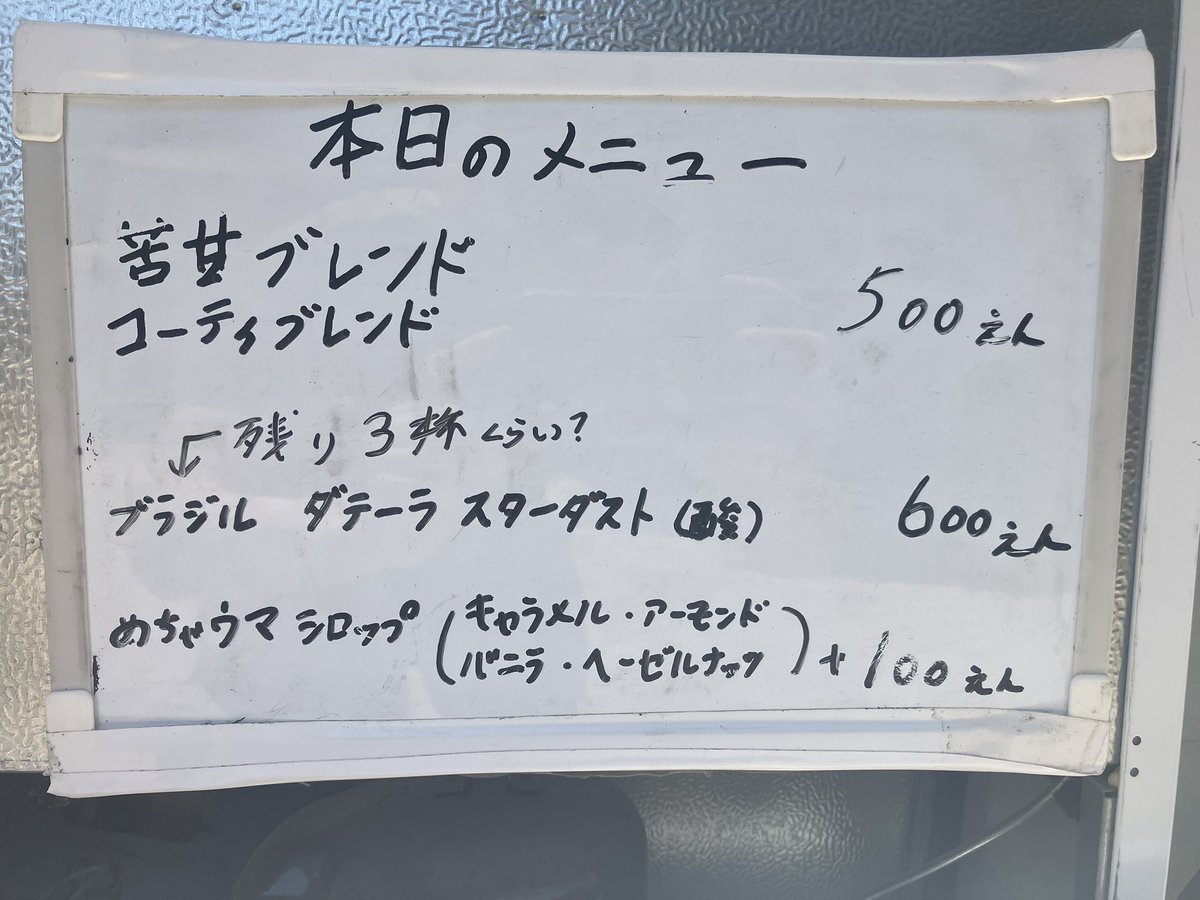 本日のメニュー
苦甘ブレンド
コーティブレンド 500えん
残り3杯くらい?
ブラジル ダテーラ スターダスト (酸) 600えん
めちゃウマ シロップ (キャラメル・アーモンド
バニラ・ヘーゼルナッツ) + 100えん